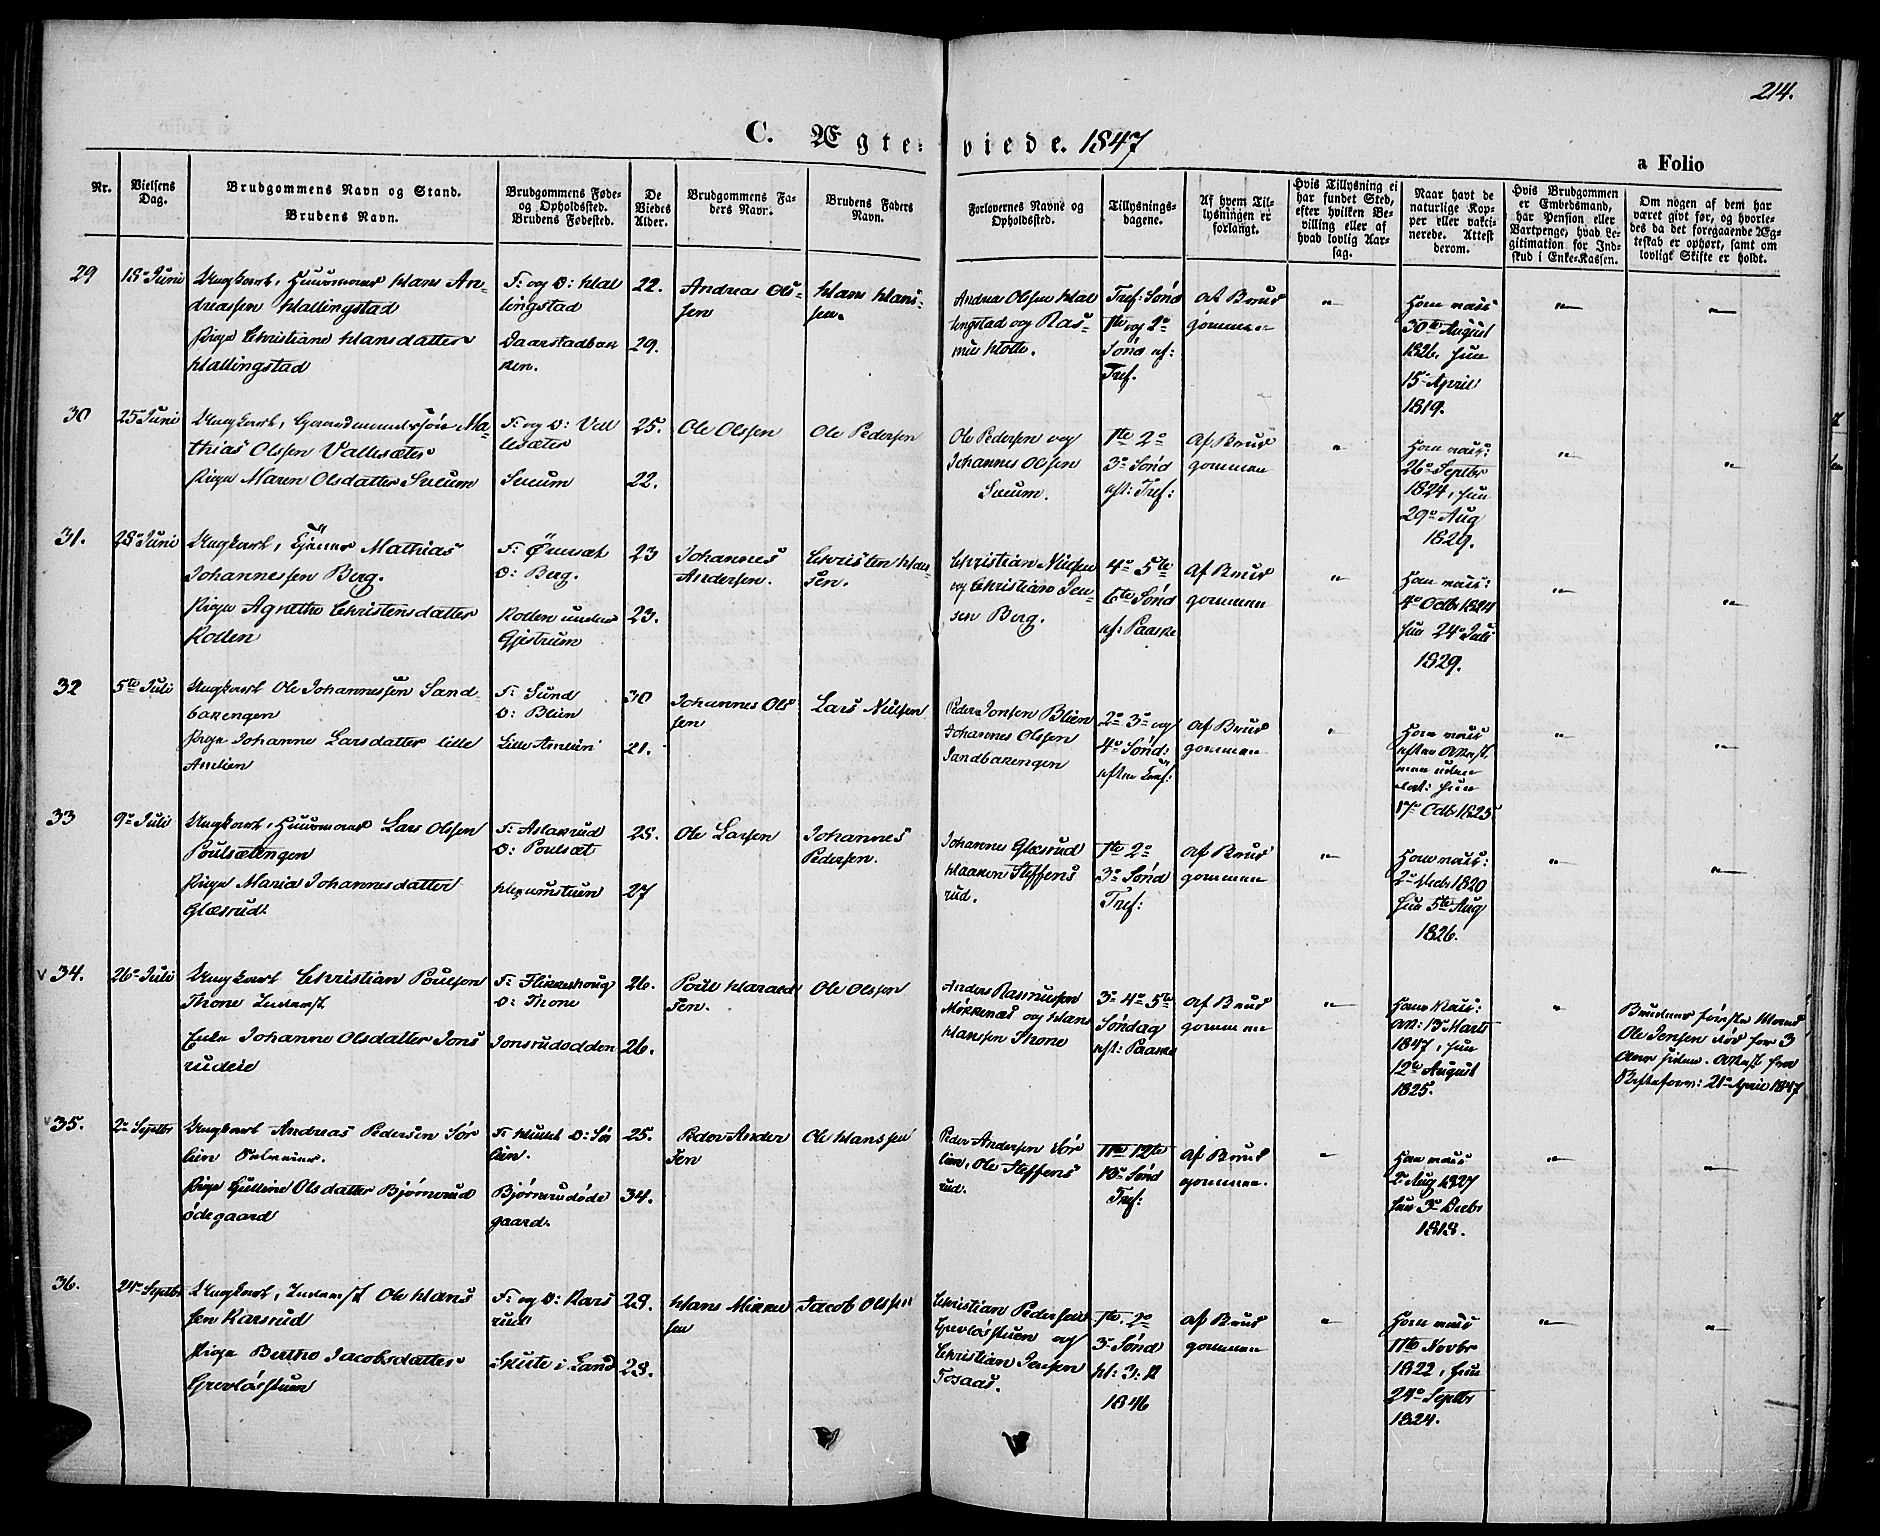 214.
C. Ægteviede. 1847
a Folio
Nr.
Vielsens Dag.
Brudgommens Navn og Stand.
Brudens Navn.
Brudgommens Føde- og Opholdssted.
Brudens Fødested.
De Viedes Alder.
Brudgommens Faders Navn.
Brudens Faders Navn.
Forlovernes Navne og Opholdssted.
Tillysnings- dagene.
Af hvem Tillysningen er forlangt.
Hvis Tillysning ei har fundet Sted, efter hvilken Bevilling eller af hvad lovlig Aarsag.
Naar havt de naturlige Kopper eller vakcinerede. Attest derom.
Hvis Brudgommen er Embedsmand, har Pension eller Vartpenge, hvad Legitimation for Indskud i Enke-Kassen.
Om nogen af dem har været gift før, og hvorledes da det foregaaende Ægteskab er ophørt, samt om lovligt Skifte er holdt.
29
18de Juni
Ungkarl, Huusmand Hans An-
dreassen Hallingstad
Pige Christiane Hansdatter
Hallingstad
F: og O: Hal
lingstad
Daarstadbak
ken.
22.
29.
Andreas Ols-
sen
Hans Hans-
sen.
Andreas Olssen Hal
lingstad og Ras-
mus Holte.
Tref: Sønd
1te og 2n
Sønd ef:
Tref.
af Brud
gommen
"
Ham nat:
30te August
1826, hun
15de April
1819.
"
"
30
25 Juni
Ungkarl, Gaardmandssøn Ma-
thias Olssen Vallesæter
Pige Maren Olsdatter Sveum
F: og O: Vall
esæter
Sveum
25.
22.
Ole Olssen
Ole Pedersen
Ole Pedersen og
Johannes Olssen
Sveum.
1te 2n
3n Sønd
eft: Tref:
af Brud
gommen
"
Ham nat:
26n Septbr
1824, hun
29n Aug
1829.
"
"
31.
28de Juni
Ungkarl, Tjener Mathias
Johannessen Berg.
Pige Agnethe Christensdatter
Rollen
F:
O: Berg.
Rollen under
Gjestrum
23
23.
Johannes
Andersen.
Christen Han-
sen.
Christian Nielsen
og Christian Jen-
sen Berg.
4n 5te
6te Sønd
ef: Paaske
af Brud
gommen
"
Ham nat:
4n Octbr 1824
hun 24n Juli
1829.
"
"
32
5te Juli
Ungkarl Ole Johannessen Sand-
bakengen
Pige Johanne Larsdatter lille
Amlien
F: Sund
O: Blien
Lille Amlien
30
21.
Johannes Ols
sen
Lars Nielsen
Peder Jonsen Blien
Johannes Olssen
Sandbakengen
2n 3n og
4n Sønd:
efter Tref:
af Brud
gommen
"
Ham nat:
efter Attest,
men uden
dat: hun
17n Octb 1825
"
"
33
9n Juli
Ungkarl, Huusmand Lars Olssen
Poulsætengen
Pige Maria Johannesdatter
Glæsrud.
F: Aslakrud
O: Poulsæt
28.
27
Ole Larsen
Johannes
Pedersen.
Johannes Glæsrud
Haaken Steffens
rud.
1te 2n
3n Sønd
Tref:
af Brud
gommen
"
Ham nat:
2n Decbr 1820
hun 5te Aug
1826.
"
"
v 34.
26n Juli
Ungkarl Christian Poulsen
Thone Inderst
Enke Johanne Olsdatter Jons
rudeie
F: Flikkeshoug
O: Thone
Jonsrudodden
26.
26.
Poul Harald
sen.
Ole Olssen
Anders Rasmussen
Mokkenæs og Hans
Hanssen Thone
3n 4n 5te
Søndag
eft: Paaske
af Brud
gommen
"
Ham Nat:
att: 13n Marts
1847, hun
12te August
1825.
"
Brudens første Mand
Ole Jensen død for 3
Aar siden. Attest fra
21n April 1847
v 35.
2n Septbr
Ungkarl Andreas Pedersen Sør
lien
Pige Gulline Olsdatter Bjørnerud
ødegaard
F: O: Sør
lien.
Bjørnerudøde
gaard.
25.
34.
Peder Ander
sen
Ole Hanssen
Peder Andersen Sør
lien, Ole Steffens
rud.
11te 12te
13n Sønd
Tref:
af Brud
gommen.
"
Ham nat:
2n Aug 1827
hun 3n Decbr
1818.
"
"
36.
24n Septbr
Ungkarl, Inderst Ole Hans
sen Karsrud
Pige Berthe Jacobsdatter
Grevløsstuen
F: og O: Kars
rud
Skute i Land
29.
28.
Hans Mikkel
sen
Jacob Olssen
Christian Pedersen
Grevløsstuen og
Christian Jensen
Tosaas.
1te. 2n
3n Sønd
1846
af Brud
gommen
"
Ham nat:
11te Novbr
1822, hun
24n Septbr
1824.
"
"